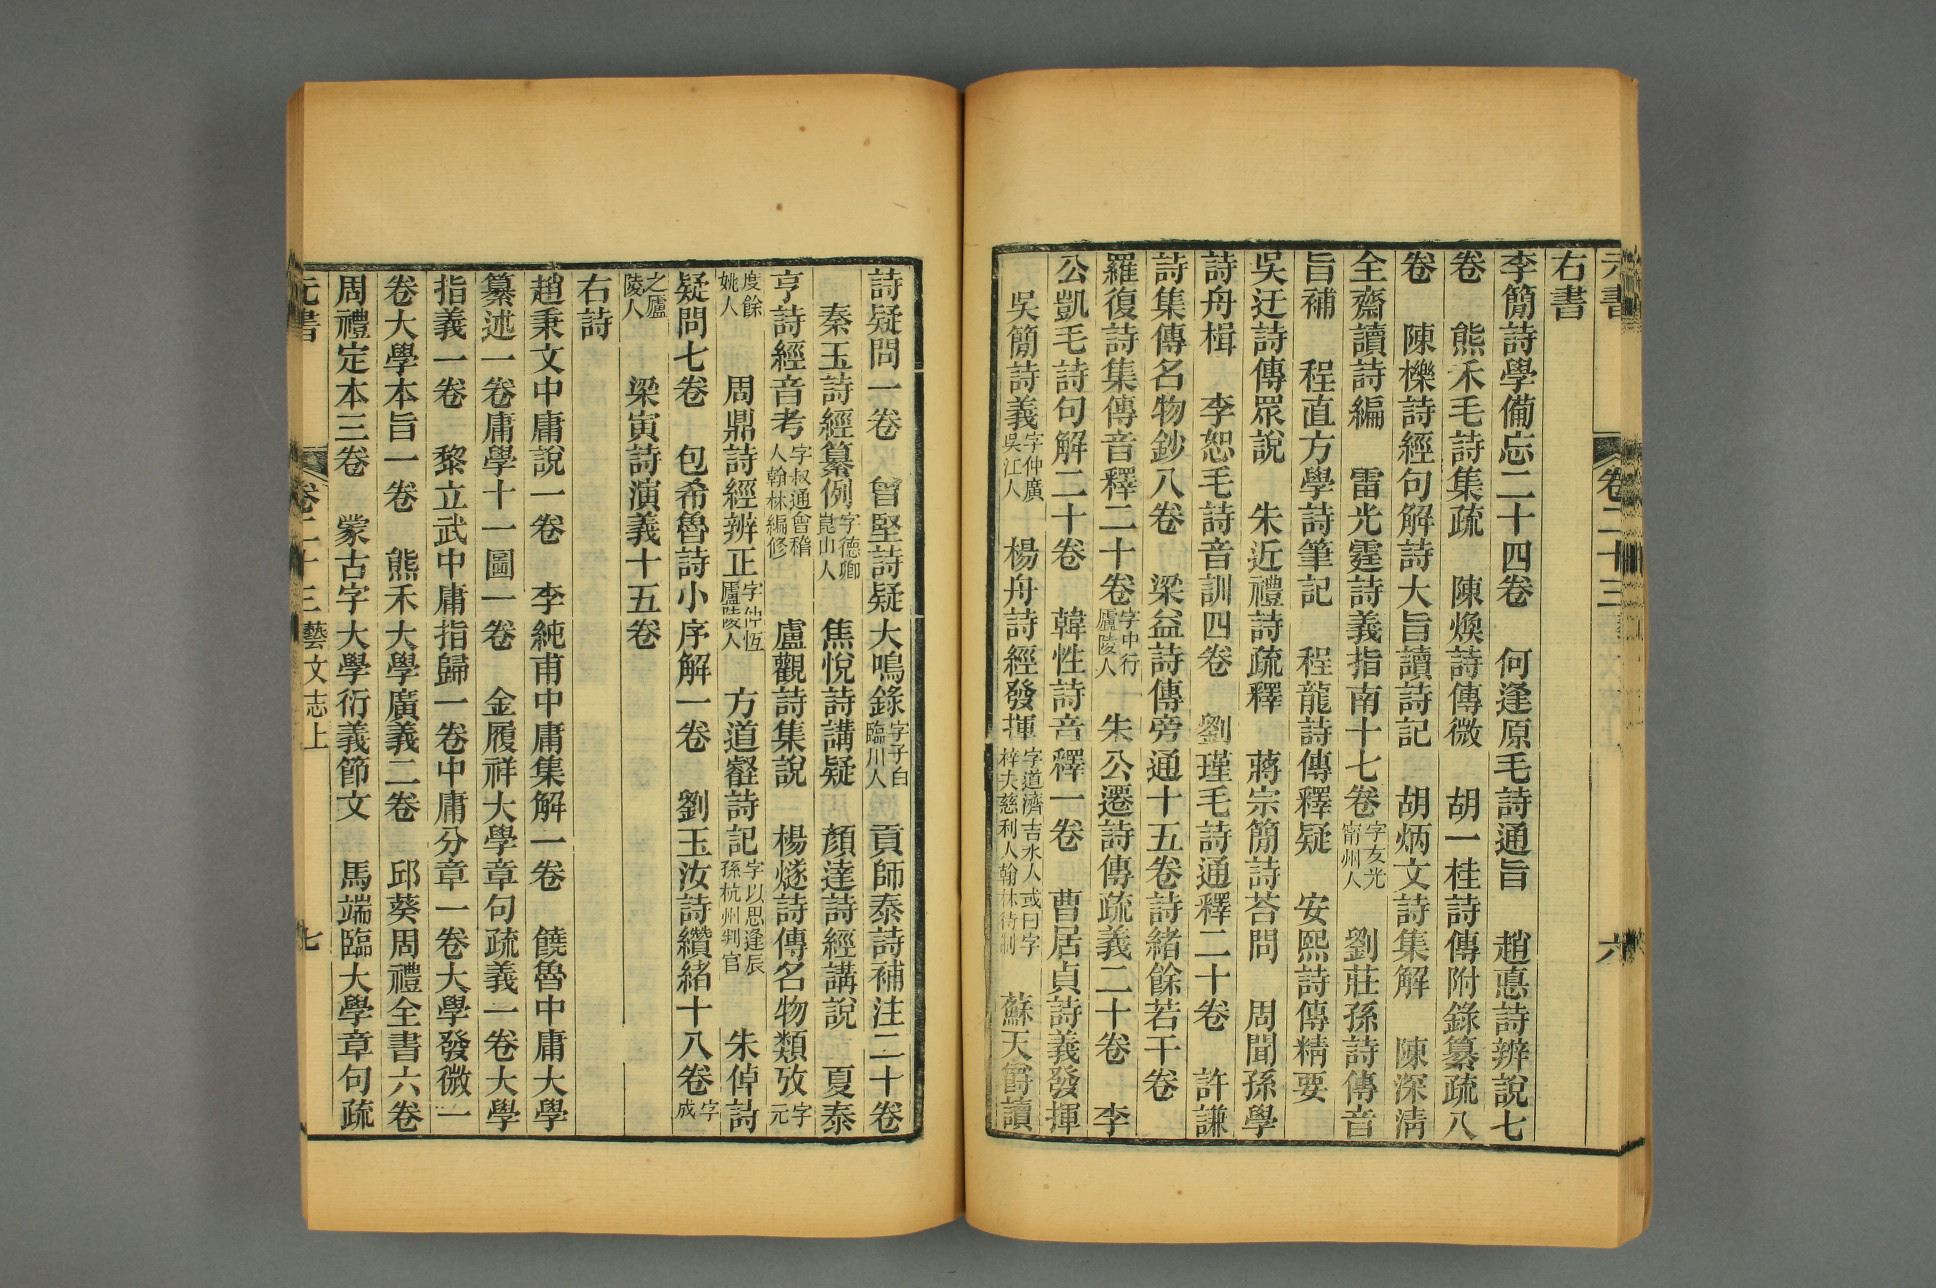 元書 卷二十三 六
右書
李簡詩學備忘二十四卷 何逢原毛詩通旨 趙悳詩辨說七
卷 熊禾毛詩集疏 陳煥詩傳微 胡一桂詩傳附錄纂疏八
卷 陳櫟詩經句解詩大旨讀詩記 胡炳文詩集解 陳深淸
全齋讀詩編 雷光霆詩義指南十七卷字友光甯州人 劉莊孫詩傳音
旨補 程直方學詩筆記 程龍詩傳釋疑 安熙詩傳精要
吳迂詩傳眾說 朱近禮詩疏釋 蔣宗簡詩荅問 周聞孫學
詩舟楫 李恕毛詩音訓四卷 劉瑾毛詩通釋二十卷 許謙
詩集傳名物鈔八卷 梁益詩傳旁通十五卷詩緒餘若干卷
羅復詩集傳音釋二十卷字中行廬陵人 朱公遷詩傳疏義二十卷 李
公凱毛詩句解二十卷 韓性詩音釋一卷 曹居貞詩義發揮
吳簡詩義字仲廣吳江人 楊舟詩經發揮字道濟吉水人或曰字梓夫慈利人翰林待制 蘇天爵讀
詩疑問一卷 曾堅詩疑大鳴錄字子白臨川人 貢師泰詩補注二十卷
秦玉詩經纂例字德卿崑山人 焦悅詩講疑 顏達詩經講說 夏泰
亨詩經音考字叔通會稽人翰林編修 盧觀詩集說 楊燧詩傳名物類攷字元
度餘姚人 周鼎詩經辨正字仲恆廬陵人 方道叡詩記字以思逢辰孫杭州判官 朱倬詩
疑問七卷 包希魯詩小序解一卷 劉玉汝詩纘緒十八卷字成
之廬陵人 梁寅詩演義十五卷
右詩
趙秉文中庸說一卷 李純甫中庸集解一卷 饒魯中庸大學
纂述一卷庸學十一圖一卷 金履祥大學章句疏義一卷大學
指義一卷 黎立武中庸指歸一卷中庸分章一卷大學發微一
卷大學本旨一卷 熊禾大學廣義二卷 邱葵周禮全書六卷
周禮定本三卷 蒙古字大學衍義節文 馬端臨大學章句疏
元書 卷二十三 藝文志上 七